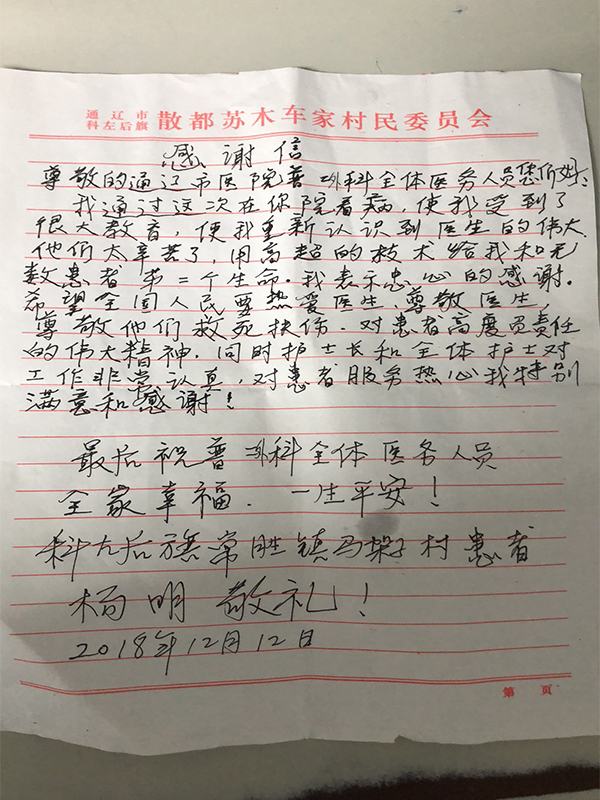 通辽市
科左后旗 散都苏木车家村民委员会
感谢信
尊敬的通辽市医院普外科全体医务人员您们好:
我通过这次在你院看病,使我受到了
很大教育,使我重新认识到医生的伟大.
他们太辛苦了,用高超的技术给我和无
数患者第二个生命.我表示忠心的感谢.
希望全国人民要热爱医生,尊敬医生,
尊敬他们救死扶伤.对患者高度负责任
的伟大精神.同时护士长和全体护士对
工作非常认真,对患者服务热心我特别
满意和感谢!
最后祝普外科全体医务人员
全家幸福.一生平安!
科左后旗常胜镇马架子村患者
杨明 敬礼!
2018年12月12日
第 页